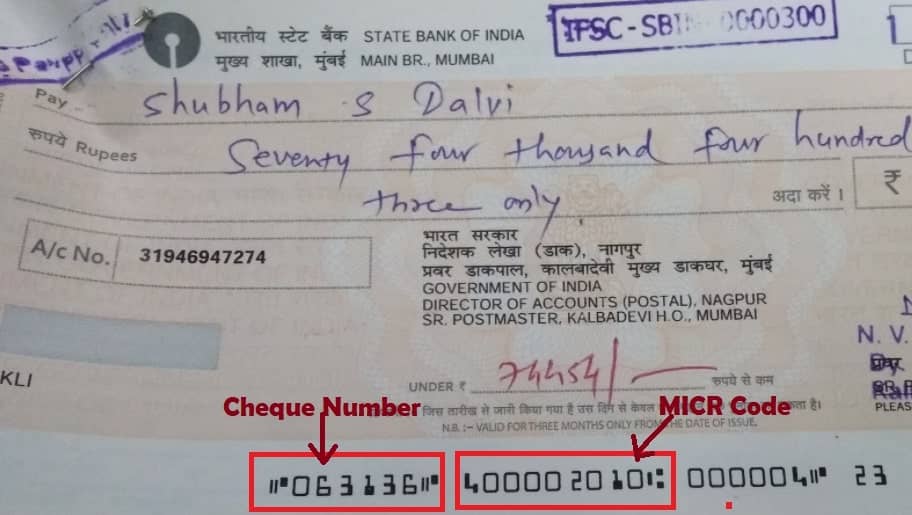 भारतीय स्टेट बैंक STATE BANK OF INDIA
मुख्य शाखा, मुंबई MAIN BR., MUMBAI
0000300
Pay Shubham S Dalvi
रुपये Rupees Seventy four thousand four hundred
three only अदा करें।
₹
A/c No. 31946947274
भारत सरकार
निदेशक लेखा (डाक), नागपुर
प्रवर डाकपाल, कालबादेवी मुख्य डाकघर, मुंबई
GOVERNMENT OF INDIA
DIRECTOR OF ACCOUNTS (POSTAL), NAGPUR
SR. POSTMASTER, KALBADEVI H.O., MUMBAI
N. V.
KLI
UNDER ₹ 74454/- रुपये से कम
PLEAS
Cheque Number
जिस तारीख से जारी किया गया है उस दिन से केवल
MICR Code
N.B. :– VALID FOR THREE MONTHS ONLY FROM THE DATE OF ISSUE.
⑈063136⑈ 400002010⑆ 000004⑈ 23